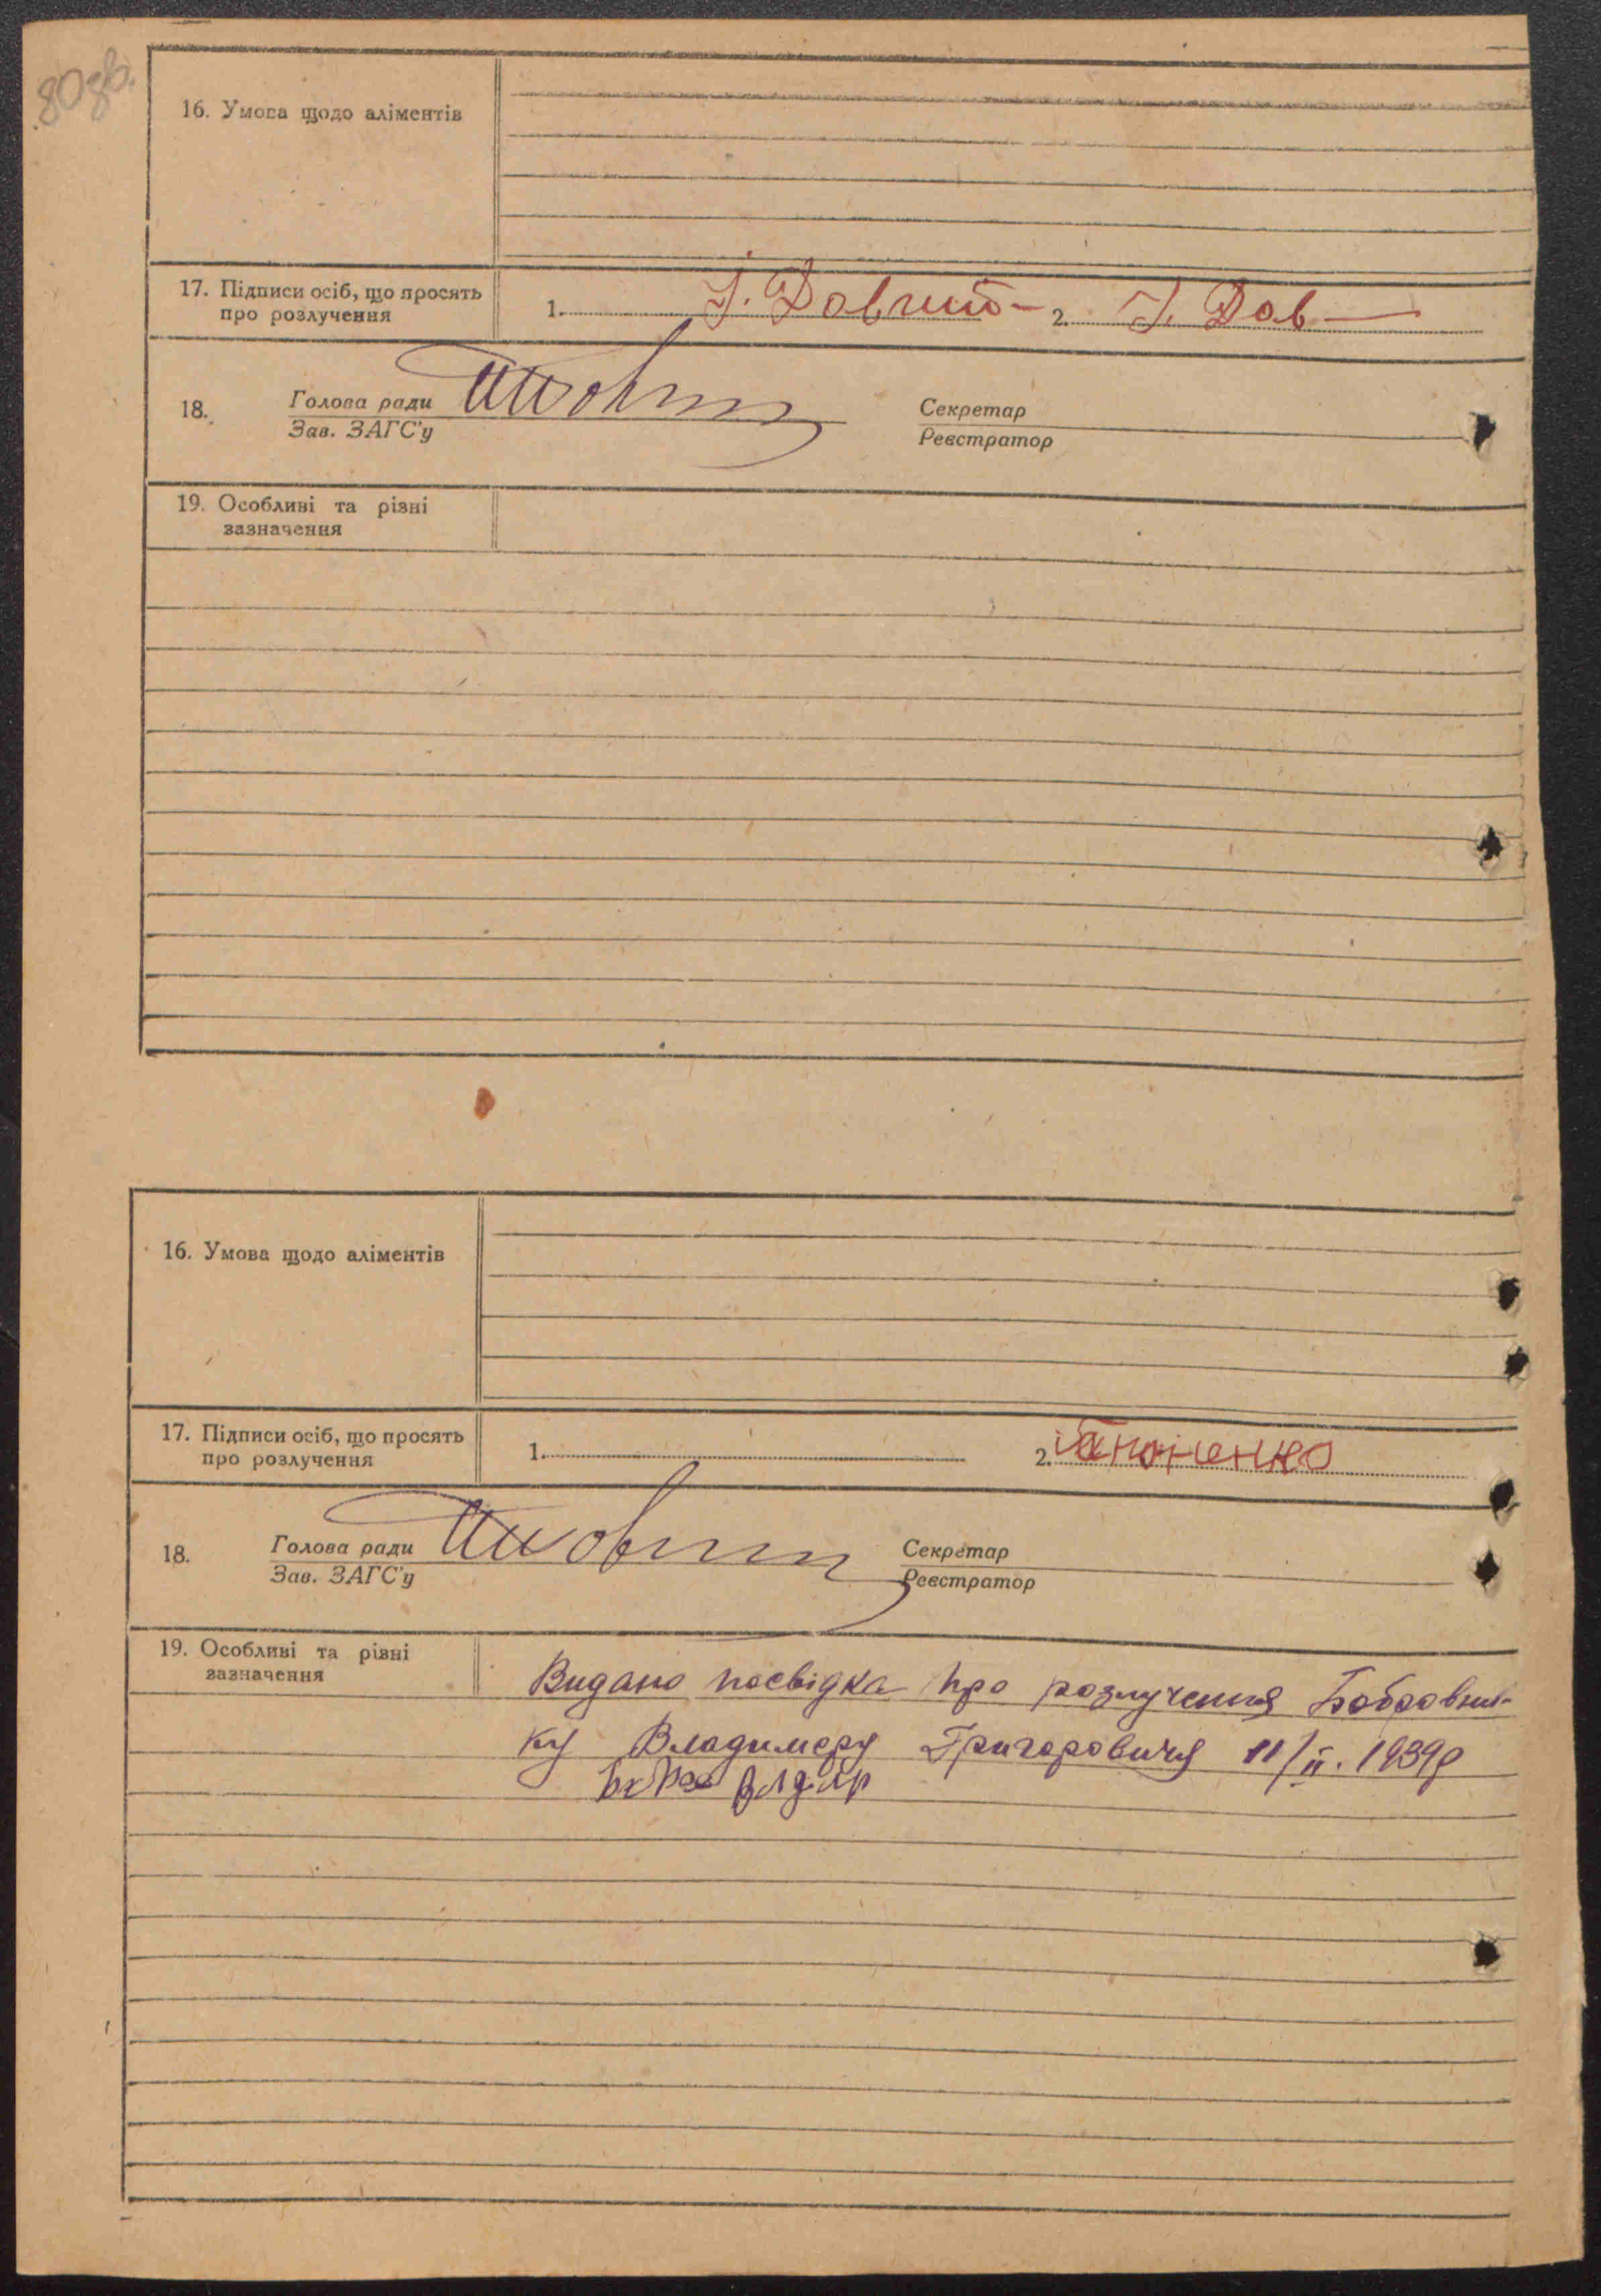 80зв.
16. Умова щодо аліментів
17. Підписи осіб, що просять
про розлучення
1. І. Довгий 2. І. Дов
18. Голова ради
Зав. ЗАГС'у
Секретар
Реєстратор
19. Особливі та різні
зазначення
16. Умова щодо аліментів
17. Підписи осіб, що просять
про розлучення
1. 2.
18. Голова ради
Зав. ЗАГС'у
Секретар
Реєстратор
19. Особливі та різні
зазначення
Видано посвідка про розлучення Бобровни-
ку Владимеру Григоровичу 11/ІІ. 1939р